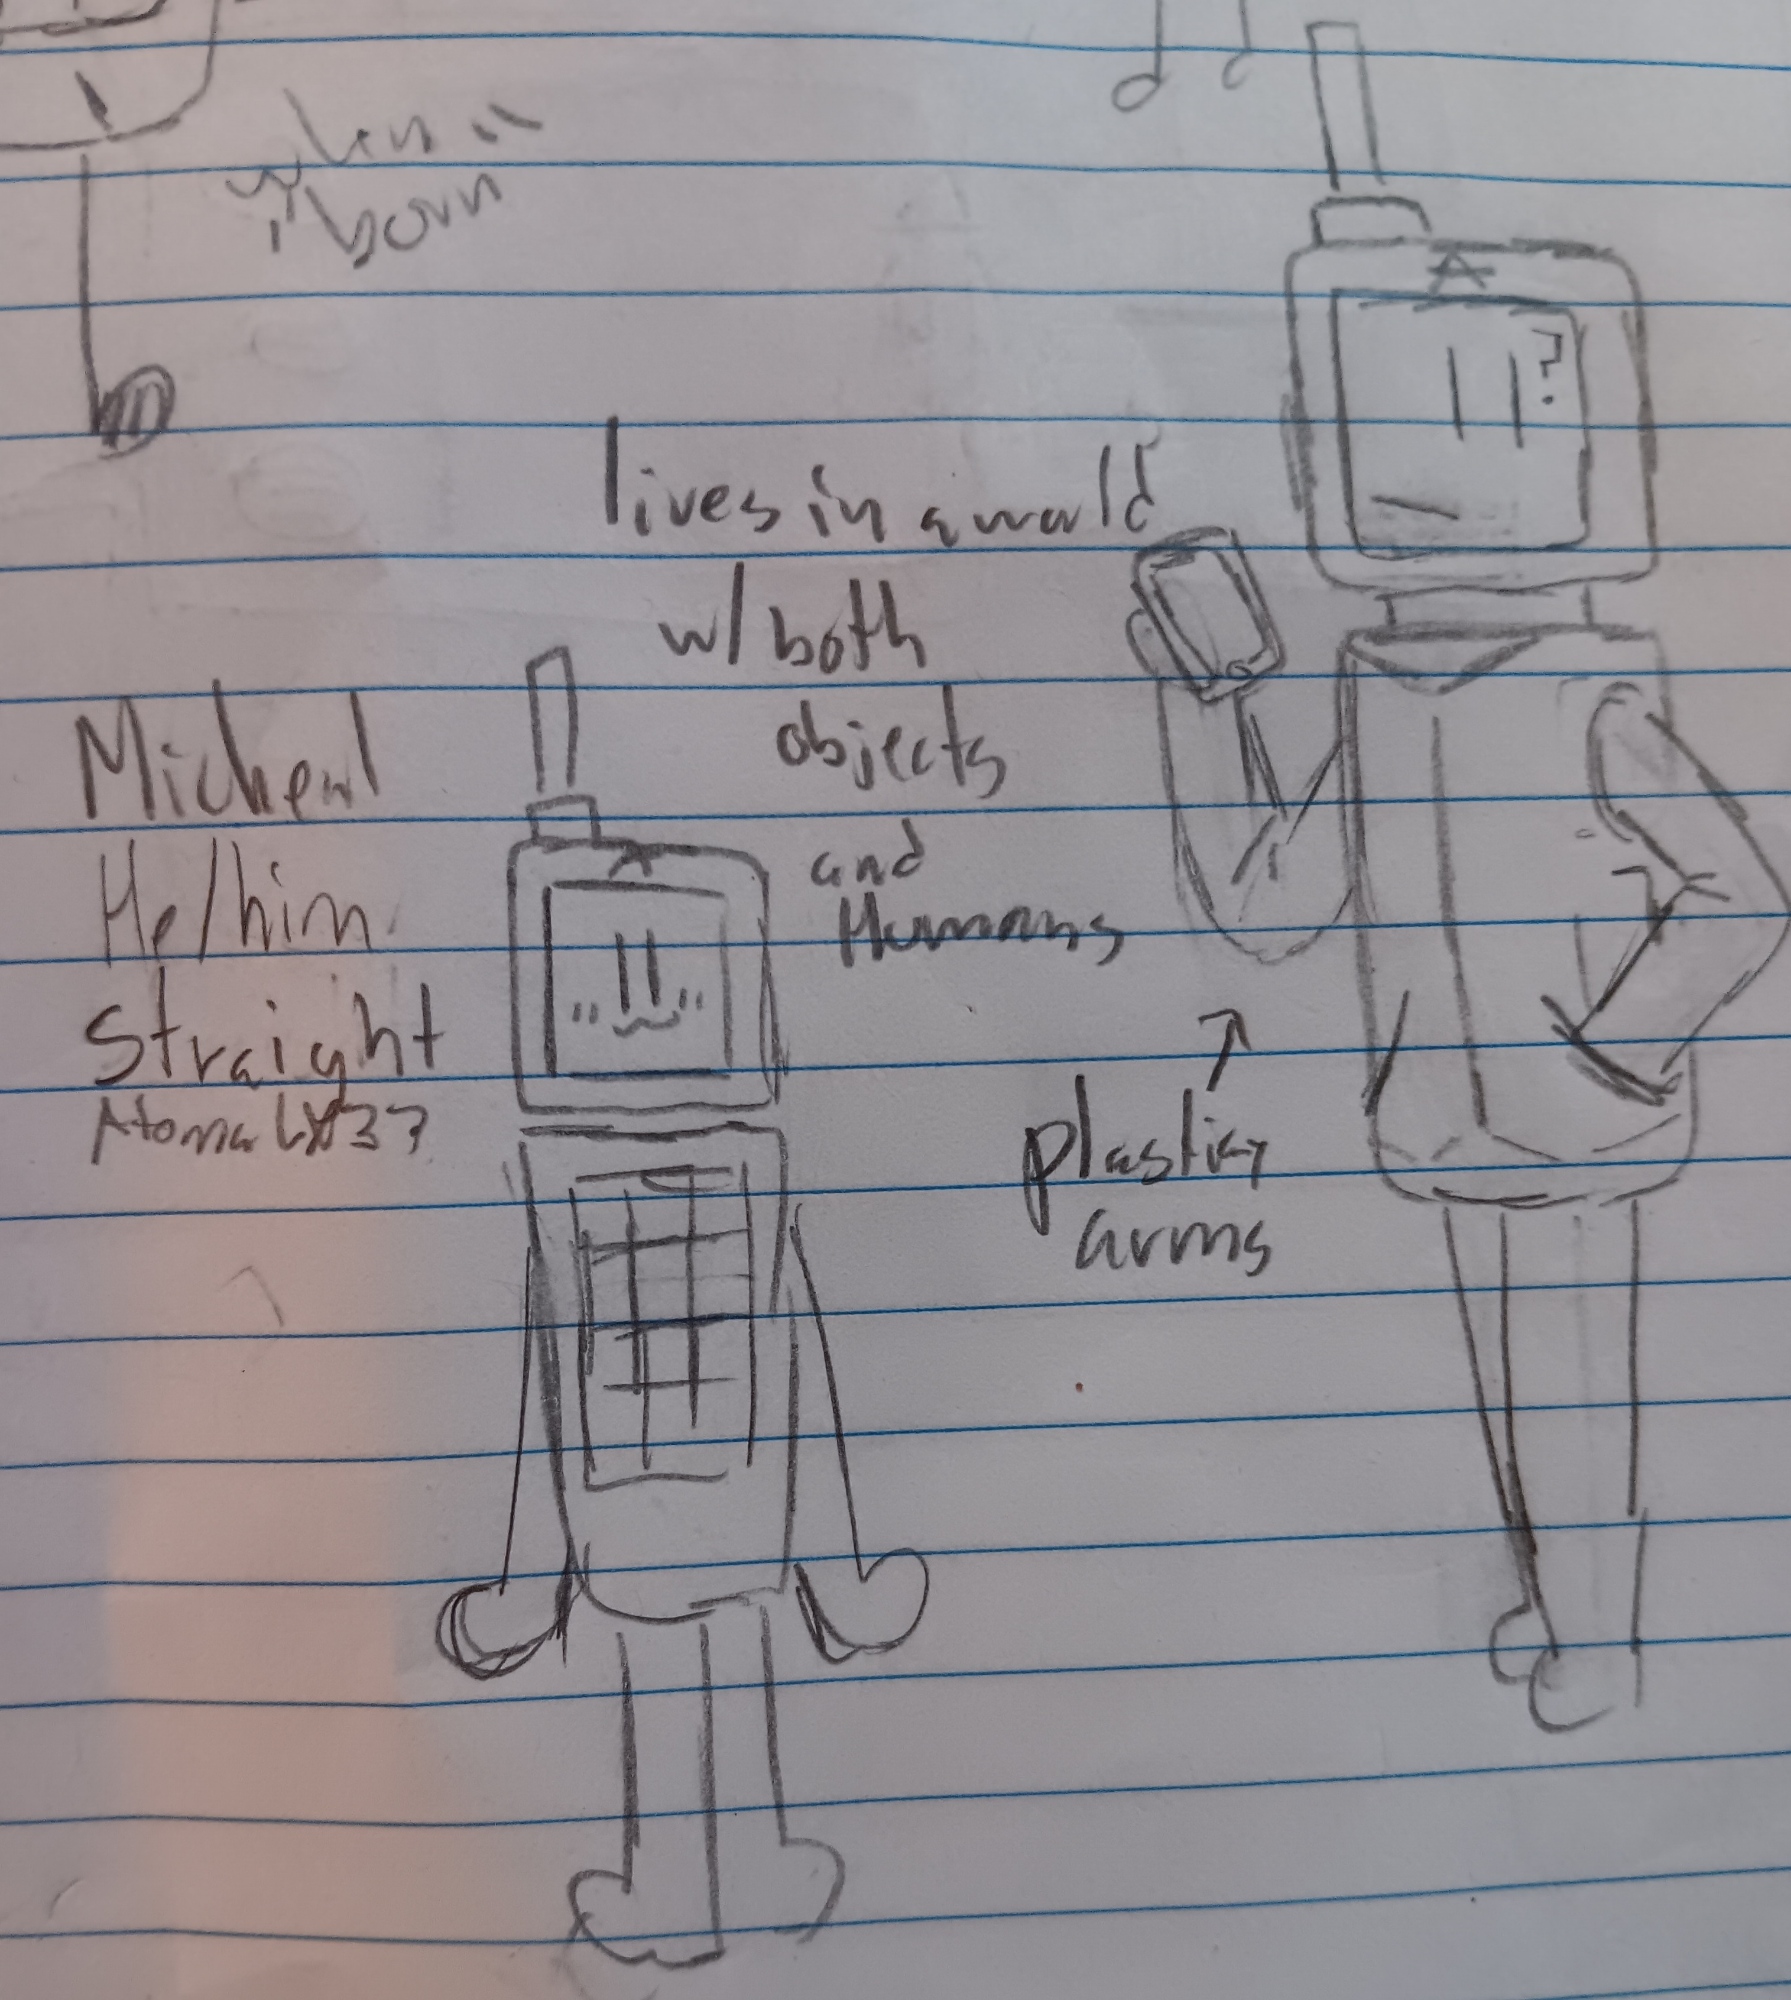 born
lives in a world
w/ both
objects
and
Humans
Micheal
He/him
Straight
A
A
?
plasticy
arms